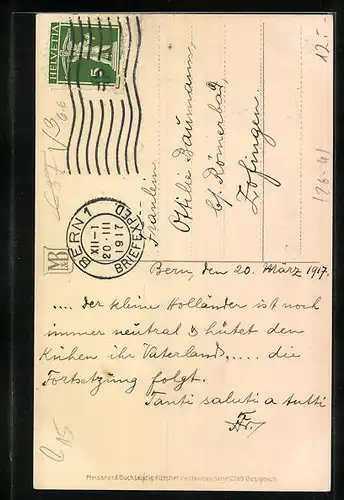 HELVETIA
5
BERN 1
20. III
1917
BRIEFEXPED.
Fräulein
Ottilie Baumann,
b/ Römerbad,
Zofingen.
12.-
MB
Bern, den 20. März 1917.
.... der kleine Holländer ist noch
immer neutral & hütet den
Kühen ihr Vaterland,..... die
Fortsetzung folgt.
Tanti saluti a tutti
Meissner & Buch, Leipzig Künstler Postkarten Serie